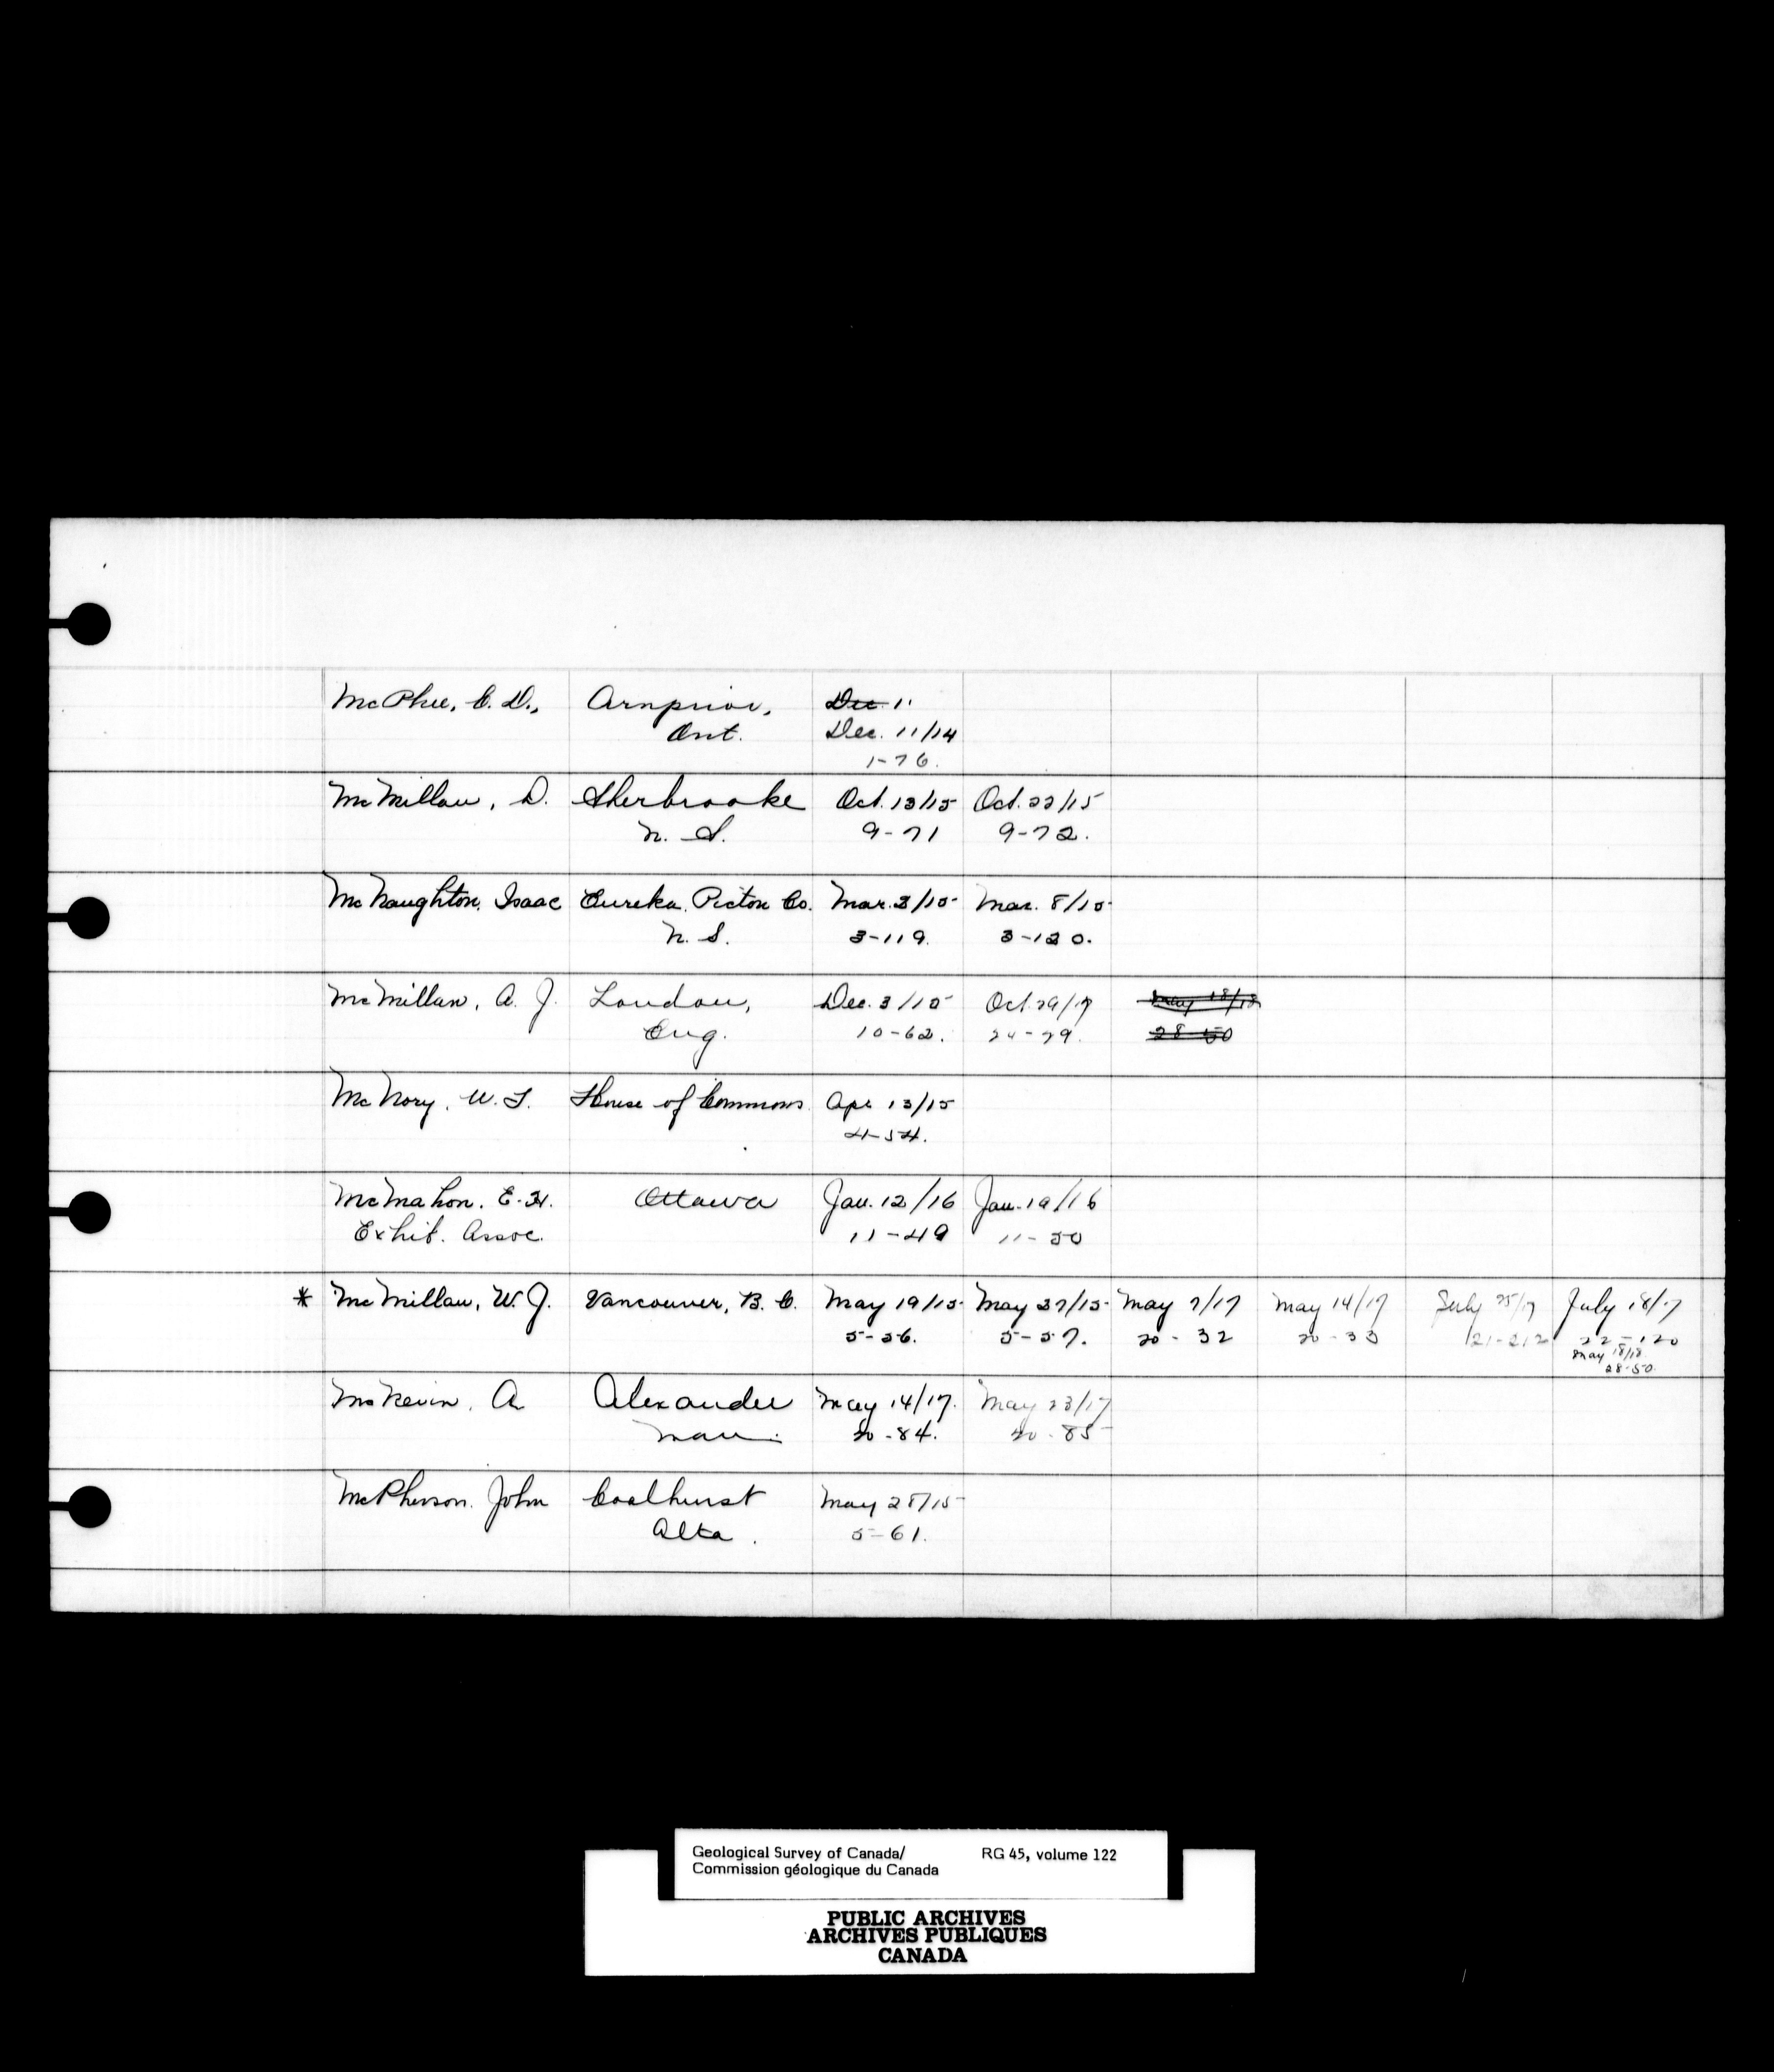 McPhee, C. D., Arnprior, Dec. 11
Ont. Dec. 11/14
1-76.
McMillan, D. Sherbrooke Oct. 13/15 Oct. 22/15
N. S. 9-71 9-72.
McNaughton, Isaac Eureka, Pictou Co. Mar. 3/15 Mar. 8/15
N. S. 3-119. 3-120.
McMillan, A. J. London, Dec. 3/15 Oct. 29/17 May 18/18
Eng. 10-62. 24-29. 28-50
McNory, W. F. House of Commons Apr. 13/15
4-54.
McMahon, E. H. Ottawa Jan. 12/16 Jan. 19/16
Exhib. Assoc. 11-49 11-50
* McMillan, W. J. Vancouver, B. C. May 19/15 May 27/15 May 7/17 May 14/17 July 25/17 July 18/17
5-56. 5-57. 20-32 20-33 21-212 22-120
May 18/18
28-50.
McKevin, A Alexander May 14/17. May 23/17
Man. 20-84. 20-85
McPherson, John Coalhurst May 28/15
Alta. 5-61.
Geological Survey of Canada/ RG 45, volume 122
Commission géologique du Canada
PUBLIC ARCHIVES
ARCHIVES PUBLIQUES
CANADA